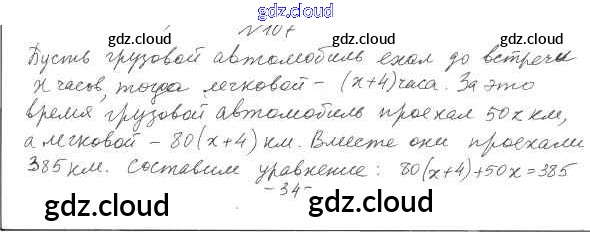 gdz.cloud
№107
gdz.cloud gdz.cloud
Пусть грузовой автомобиль ехал до встречи
x часов, тогда легковой - (x+4) часа. За это
время грузовой автомобиль проехал 50x км,
а легковой - 80(x+4) км. Вместе они проехали
385 км. Составим уравнение: 80(x+4)+50x=385
-34-
gdz.cloud gdz.cloud
gdz.cloud